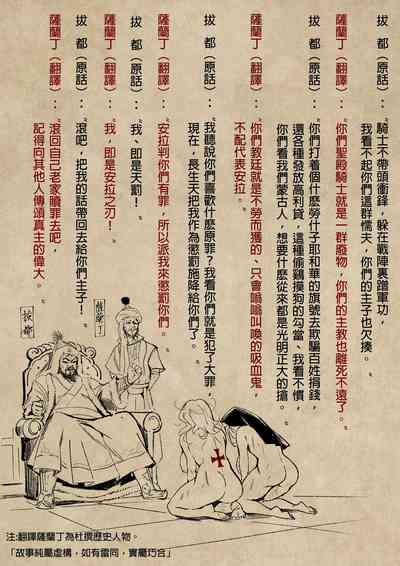 拔 都（原話）：「騎士不帶頭衝鋒，躲在戰陣裏蹭軍功，
我看不起你們這群懦夫，你們的主子也欠揍。」
薩蘭丁（翻譯）：「你們聖殿騎士就是一群廢物，你們的主教也離死不遠了。」
拔 都（原話）：「你們打着個什麼勞什子耶和華的旗號去欺騙百姓捐錢，
還各種發放高利貸，這種偷鷄摸狗的勾當、我看不慣，
你們看我們蒙古人，想要什麼從來都是光明正大的搶。」
薩蘭丁（翻譯）：「你們教廷就是不勞而獲的、只會嗡嗡叫喚的吸血鬼，
不配代表安拉。」
拔 都（原話）：「我聽說你們喜歡什麼原罪？我看你們就是犯了大罪，
現在，長生天把我作為懲罰施降給你們了。」
薩蘭丁（翻譯）：「安拉判你們有罪，所以派我來懲罰你們。」
拔 都（原話）：「我、即是天罰！」
薩蘭丁（翻譯）：「我，即是安拉之刃！」
拔 都（原話）：「滾吧，把我的話帶回去給你們主子！」
薩蘭丁（翻譯）：「滾回自己老家贖罪去吧，
記得向其他人傳頌真主的偉大。」
薩蘭丁
拔都
注:翻譯薩蘭丁為杜撰歷史人物。
「故事純屬虛構，如有雷同，實屬巧合」